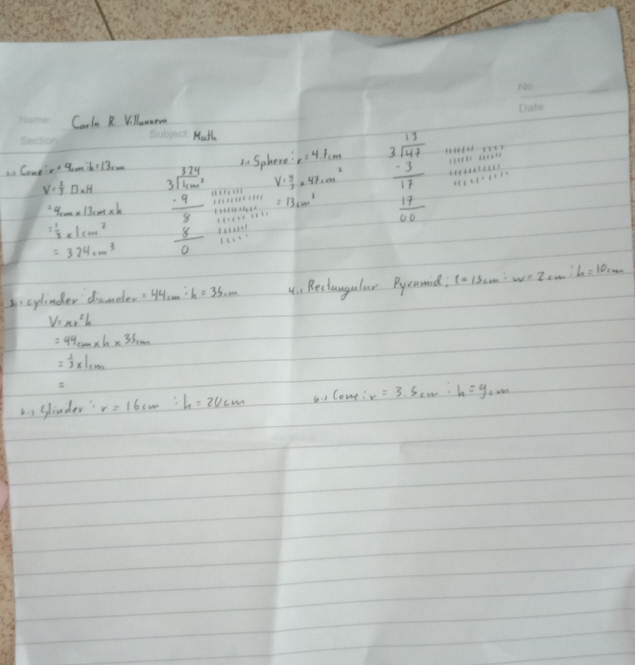 No.
Name: Carla R. Villanueva
Date
Section Subject Math
1.) Cone: r = 9cm : h = 13cm
V = 1/3 πr²H
= 9cm x 13cm x h
= 1/3 x 1cm²
= 324cm³
324
3√1cm²
- 9
8
8
0
2.) Sphere: r = 4.7cm
V = 4/3 x 47cm²
= 13cm³
13
3√47
- 3
17
17
00
3.) cylinder diameter = 44cm : h = 35cm
V = πr²h
= 44cm x h x 35cm
= 1/3 x 1cm
=
4.) Rectangular Pyramid; l = 15cm : w = 2cm : h = 10cm
r = 16cm : h = 20cm
6.) Cone: r = 3.5cm : h = 9cm